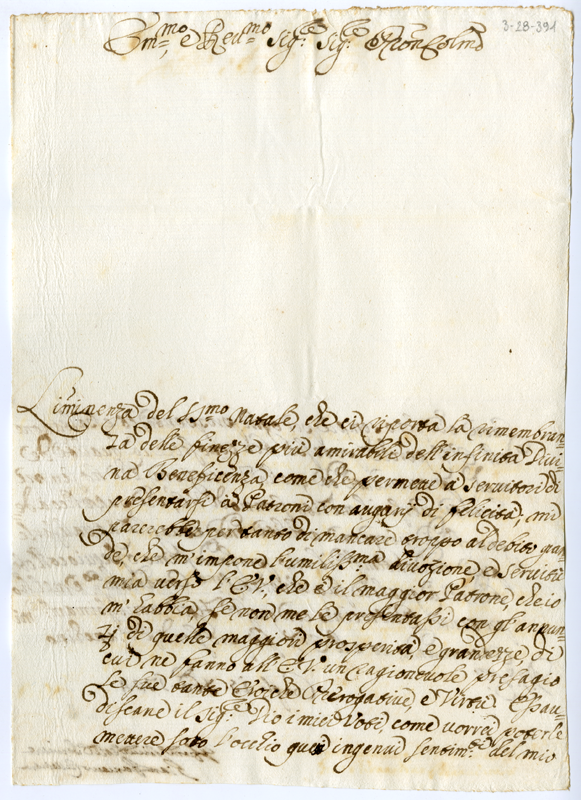 3-28-391
Em.mo, e Reu.mo Sig.re Sig.re P.ron Col.mo
L'iminenza del SS.mo Natale, che ci riporta la rimembran=
za delle finezze più amirabile dell'infinita Diui=
na Beneficenza, come che permoue a Seruitori di
presentarsi à Patroni con augurij di felicità, mi
parerebbe per tanto di mancare troppo al debito gran
de, che m'impone l'umiliss.ma diuozione, e seruitù
mia uerso l'E.V., che è il maggior Patrone, che io
m'habbia, se non me le presentassi con gl'anun=
zij di quelle maggiori prosperità, e grandezze, di
cui ne fanno all'E.V. un ragioneuole presagio
le sue tante Eroiche Prerogatiue, e Virtù
il Sig.re Dio i miei Voti, come uorrei poterle
mettere soto l'occhio quei ingenui sentim.ti del mio